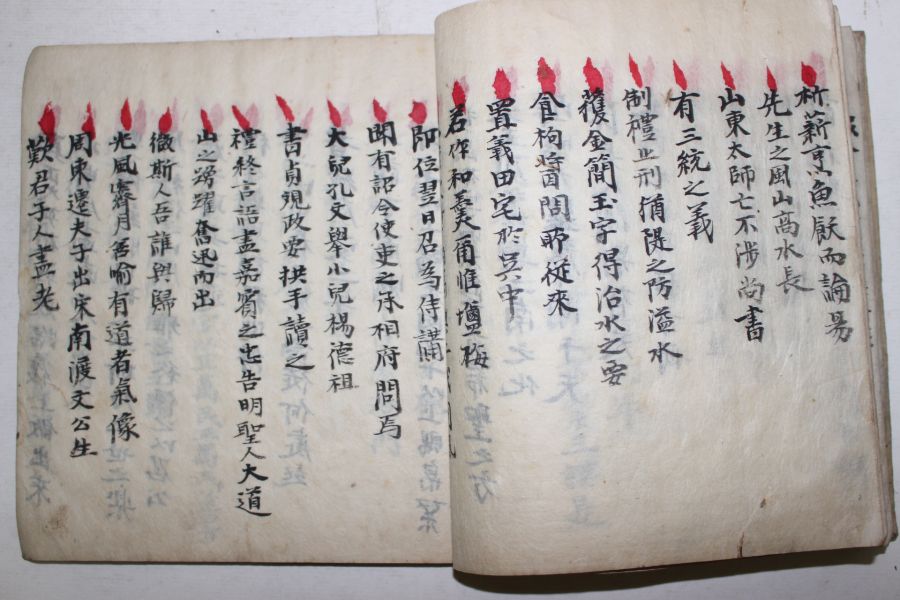 析薪烹魚厭而論易
先生之風山高水長
山東太師亡不涉尚書
有三統之義
制禮止刑猶隄之防溢水
獲金簡玉字得治水之要
食枸醬問耶從來
置義田宅於吳中
若作和羹爾惟塩梅
卽位翌日召爲侍講
聞有詔令使吏之泳相府問焉
大兒孔文舉小兒楊德祖
書貞觀政要拱手讀之
禮終言語盡嘉賓之
告明聖人大道
山之踴躍奮迅而出
微斯人吾誰與歸
光風霽月善喩有道者氣像
周東遷夫子出宋南渡文公生
歎君子人盡老